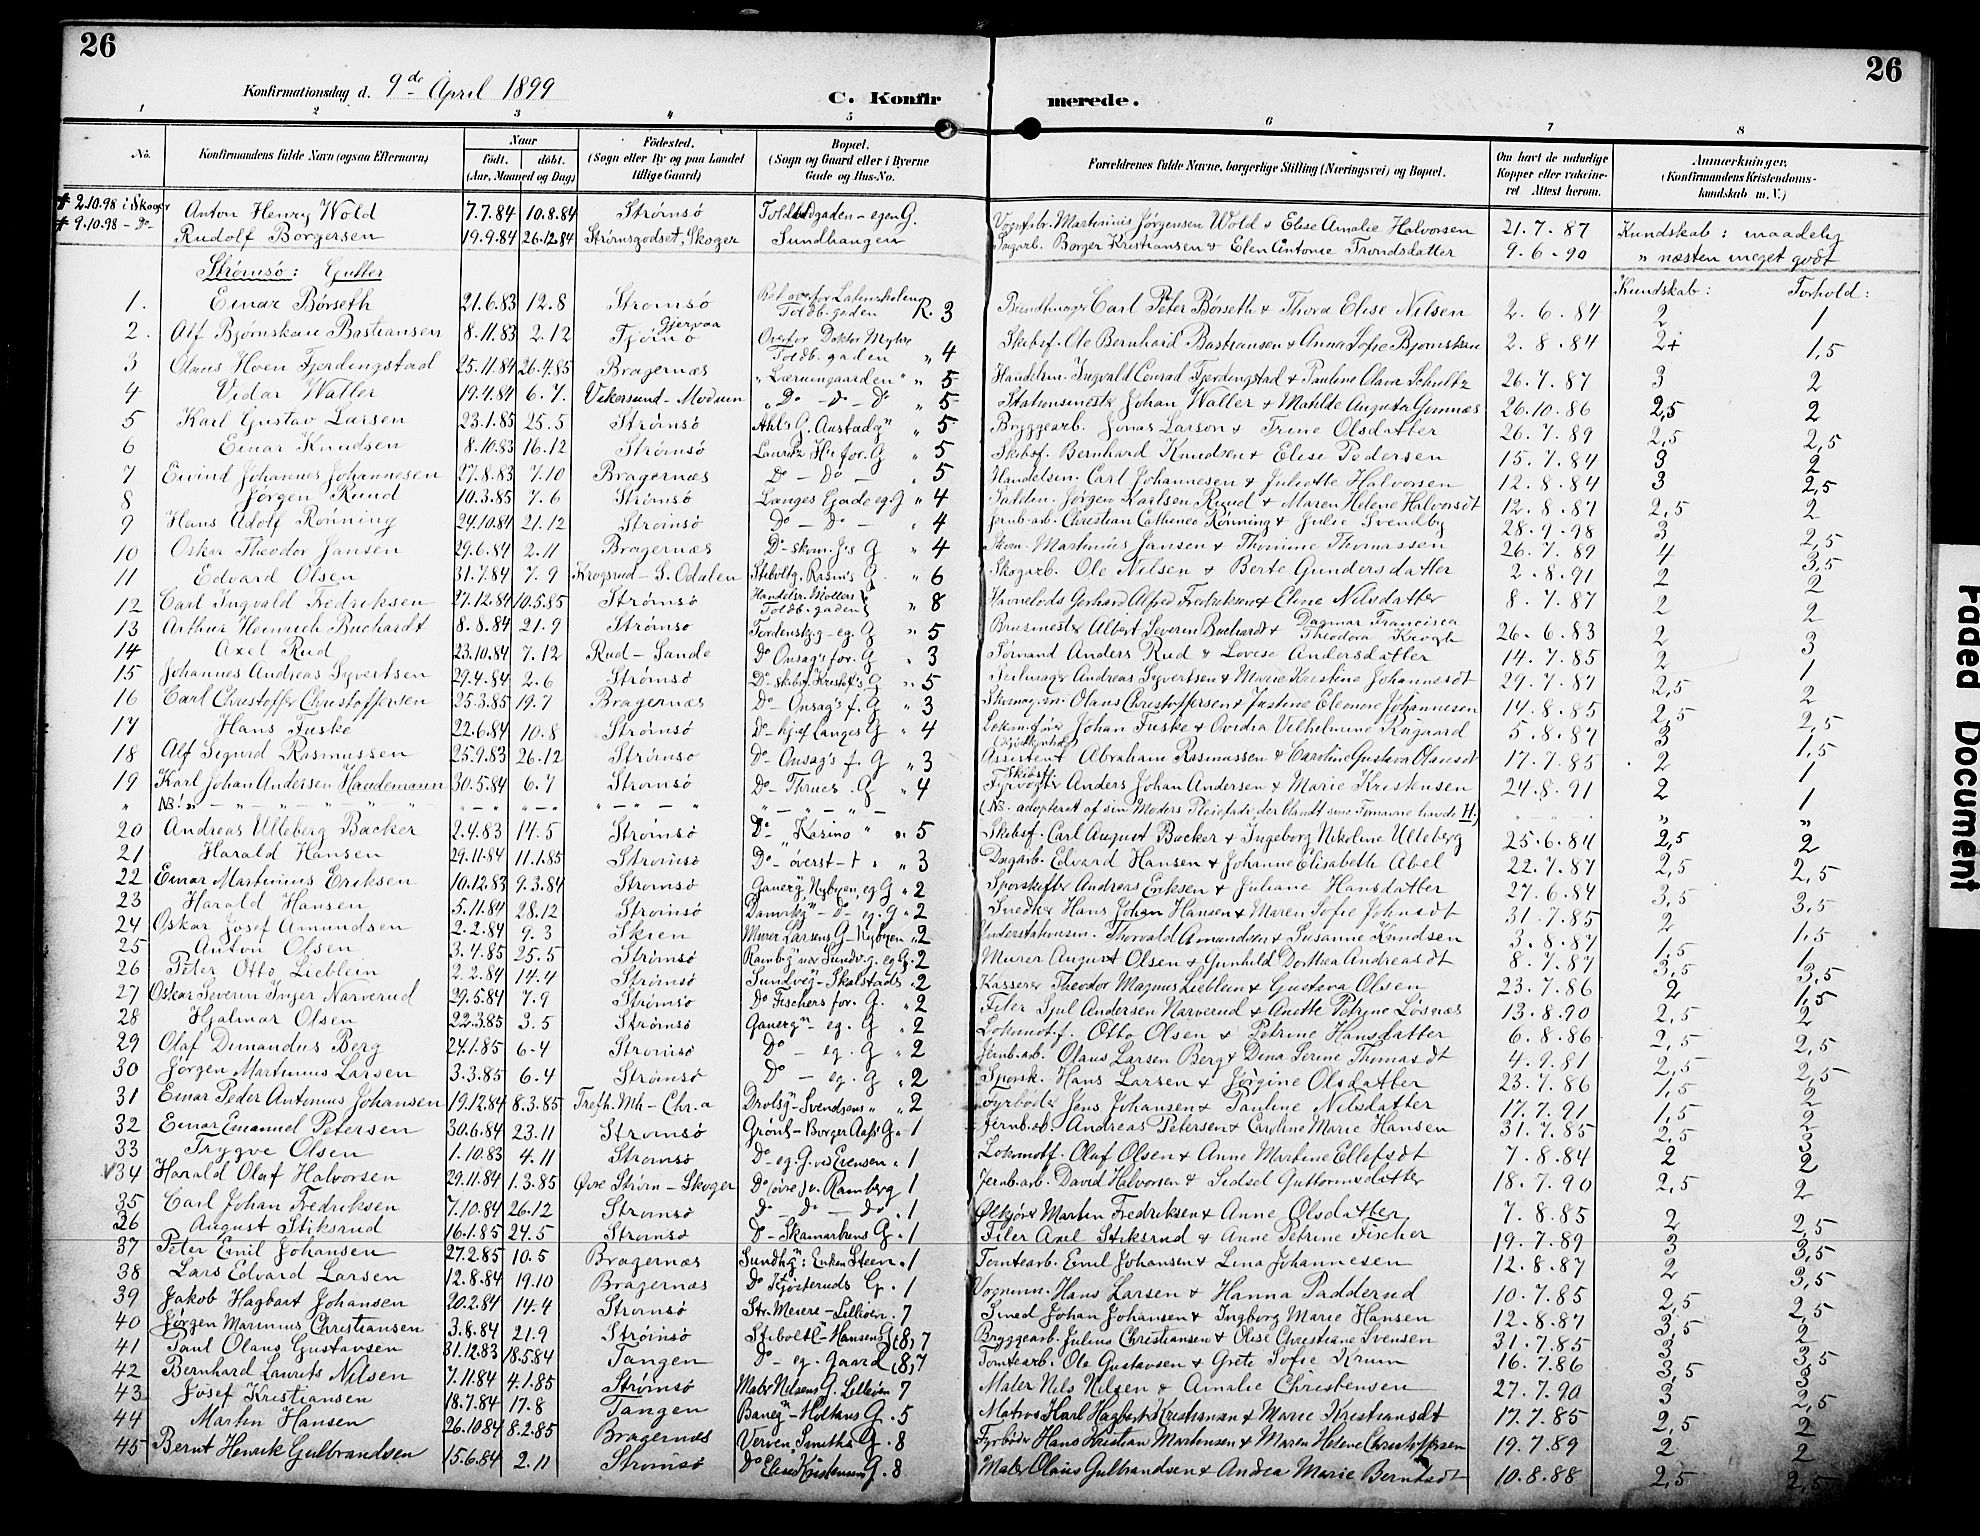 26
26
Konfirmationsdag d. 9de April 1899
C. Konfirmerede.
1 2 3 4 5 6 7 8
No. Konfirmandens fulde Navn (ogsaa Efternavn) Naar født. døbt. (Aar, Maaned og Dag) Fødested. (Sogn eller By og paa Landet tillige Gaard) Bopæl. (Sogn og Gaard eller i Byerne Gade og Hus-No. Forældrenes fulde Navne, borgerlige Stilling (Næringsvei) og Bopæl. Om havt de naturlige Kopper eller vaccineret Attest herom. Anmærkninger, (Konfirmandens Kristendomskundskab m. V.)
# 2.10.98 i Skoger Anton Henry Wold 7.7.84 10.8.84 Strømsö Toldbodgaden - egen G. Martinius Jørgensen Wold & Elise Amalie Halvorsen 21.7.87 Kundskab: maadelig
# 9.10.98 - Do- Rudolf Borgersen 19.9.84 26.12.84 Strømsgodset, Skoger Sundhaugen Dagarb. Borger Kristiansen & Elen Antonie Trondsdatter 9.6.90 " næsten meget godt
Strømsö: Gutter Kundskab: Forhold:
1. Einar Børseth 21.6.83 12.8 Strømsö Ret overfor Latinskolen Toldb.gaden R. 3 Carl Peter Børseth & Thora Elise Nilsen 2.6.84 2 1
2. Alf Bjørnskau Bastiansen 8.11.83 2.12 Gjervaa Tjømö Overfor Doktor Myhre Toldb.gaden " 4 Skibsf. Ole Bernhard Bastiansen & Anna Sofie Bjørnskau 2.8.84 2+ 1,5
3 Olaus Hoen Fjerdingstad 25.11.84 26.4.85 Bragernæs "Lærumgaarden" " 5 Handelsm. Ingvald Conrad Fjerdingstad & Pauline Olava Schultz 26.7.87 3 2
4 Vidar Waller 19.4.84 6.7. Vikersund - Modum " Do - do - Do " 5 Stationsmester Johan Waller & Matilde Augusta Gumnæs 26.10.86 2,5 2
5 Karl Gustav Larsen 23.1.85 25.5 Strømsö Ahl's G. Austadgn " 5 Bryggearb. Jonas Larson & Trine Olsdatter 26.7.89 2,5 2,5
6 Einar Knudsen 8.10.83 16.12 Strømsö Lauritz for. G " 5 Skibsf. Bernhard Knudsen & Elise Pedersen 15.7.84 3 2
7 Eivind Johannes Johannesen 27.8.83 7.10 Bragernæs Do - Do - " 5 Handelsm. Carl Johannesen & Juliette Halvorsen 12.8.84 3 2,5
8 Jörgen Ruud 10.3.85 7.6 Strømsö Langes Gade eg. G " 4 Jørgen Karlsen Ruud & Maren Helene Halvorsdt 12.8.87 2,5 2
9 Hans Adolf Rönning 24.10.84 21.12 Strømsö Do - Do - " 4 Jernb-arb. Christian Rönning & Julie Svendby 28.9.98 3 2,5
10 Oskar Theodor Jansen 29.6.84 2.11 Bragernæs Do- G " 4 Skom. Martinius Jansen & Thomine Thomassen 26.7.89 4 3,5
11 Edvard Olsen 31.7.84 7.9 Krogsrud - S. Odalen G. " 6 Skogarb. Ole Nilsen & Berte Gundersdatter 2.8.91 2 2
12 Carl Ingvald Fredriksen 27.12.84 10.5.85 Strømsö Handelsr. Møllers Toldb.gaden " 8 Havnelods Gerhard Alfred Fredriksen & Eline Nilsdatter 8.7.87 2 2
13 Arthur Heinrich Buchardt 8.8.84 21.9 Strømsö Tordenskj.g - eg. G " 5 Albert Severin Buchardt & Dagmar Francisca Theodora 26.6.83 2 3
14 Axel Rud 23.10.84 7.12 Rud - Sande Do Onsag's for. G " 3 Anders Rud & Lovise Andersdatter 14.7.85 2 1
15 Johannes Andreas Syvertsen 29.4.84 2.6 Strømsö Do- skibsf. Kristof's G " 5 Seilmager Andreas Syvertsen & Marie Kristine Johannesdt 29.7.87 2,5 2
16 Carl Christoffer Christoffersen 25.3.85 19.7 Bragernæs Do- Onsag's f. G " 3 Olaus Christoffersen & Justine Eleonore Johannesen 14.8.85 2,5 2,5
17 Hans Fuske 22.6.84 10.8 Strømsö Do- Langes G " 4 Johan Fuske & Ovidia Vilhelmine Risgaard 5.8.87 3 1,5
18 Alf Sigurd Rasmussen 25.9.83 26.12 Strømsö Do- Onsag's f. G " 3 Assistent Abraham Rasmussen & Caroline Gustava Olausdt 17.7.85 2 1
19 Karl Johan Andersen Haudemann 30.5.84 6.7 Strømsö Do- Thrues. G " 4 Skibsf. Fyrvogter Anders Johan Andersen & Marie Kristensen 24.8.91 2 1
" NB! " - " - " (NB. adopteret af sin Moders Pleiefader, der blandt sine Fornavne havde H.) " "
20 Andreas Ulleberg Backer 2.4.83 14.5 Strømsö Do- "Kasino" " 5 Skibsf. Carl August Backer & Ingeborg Nikoline Ulleberg 25.6.84 2,5 2
21 Harald Hansen 29.11.84 11.1.85 Strømsö Do- øverst - t " " 3 Dagarb. Edvard Hansen & Johanne Elisabeth Abel 22.7.87 2,5 2,5
22 Einar Martinius Eriksen 10.12.83 9.3.84 Strømsö Nybyen, eg G " 2 Sporskifter Andreas Eriksen & Juliane Hansdatter 27.6.84 3,5 3,5
23 Harald Hansen 5.11.84 28.12 Strømsö - Do- eg. G " 2 Snedker Hans Johan Hansen & Maren Sofie Johnsdt 31.7.85 2 1,5
24 Oskar Josef Amundsen 2.2.84 9.3 Skien Murer Larsens G - Nybyen " 2 Thorvald Amundsen & Susanne Knudsen 3.8.87 1,5 1
25 Anton Olsen 3.4.85 25.5 Strømsö eg G. 2 Murer August Olsen & Gunhild Dorthea Andreasdt 8.7.87 3,5 3,5
26 Peter Otto Lieblein 2.2.84 14.4 Strømsö Sundveg - Skalstads . 2 Kasserer Theodor Magnus Lieblein & Gustava Olsen 23.7.86 2 1,5
27 Oskar Severin Inger Narverud 29.5.84 7.9 Strømsö Do Fischers for. G. " 2 Filer Sjul Andersen Narverud & Anette Petrine Løsnæs 13.8.90 2,5 2
28 Hjalmar Olsen 22.3.85 3.5 Strømsö - eg. G " 2 Lokomotf. Otto Olsen & Petrine Hansdatter 6.8.86 2,5 2,5
29 Olaf Dunandus Berg 24.1.85 6.4 Strømsö Do - eg. G " 2 Jernb.arb. Olaus Larsen Berg & Dina Serine Thomasdt 4.9.81 2,5 2,5
30 Jørgen Martinius Larsen 3.3.85 6.4 Strømsö Do - eg. G " 2 Sporsk. Hans Larsen & Jørgine Olsdatter 23.7.86 1,5 2
31 Einar Peder Antonius Johansen 19.12.84 8.3.85 Trefh. Mh - Chr.a - Svendsens " " 2 Fyrbøder Jens Johansen & Pauline Nilsdatter 17.7.91 1,5 2
32 Einar Emanuel Petersen 30.6.84 23.11 Strømsö Grønl - Borger Aass G " 1 Jernb.ab Andreas Petersen & Caroline Marie Hansen 31.7.85 2,5 3
33 Trygve Olsen 1.10.83 4.11 Strømsö Do - eg. G. ved Evensen " 1 Lokomotf. Olaf Olsen & Anne Martine Ellefsdt 7.8.84 2 2
√34 Harald Olaf Halvorsen 29.11.84 1.3.85 Øvre Strøm - Skoger Do (øvre) v. Ramberg 1 Jernb.arb. David Halvorsen & Sidsel Guttormsdatter 18.7.90 2,5 2
35 Carl Johan Fredriksen 7.10.84 26.12 Strømsö Do - Do - Do " 1 Ølkjører Martin Fredriksen & Anne Olsdatter 7.8.85 2 2,5
36 August Stiksrud 16.1.85 24.5 Strømsö Do - Skamarkens G. 1 Filer Axel Stiksrud & Anne Petrine Fischer 19.7.89 3 3,5
37 Peter Emil Johansen 27.2.85 10.5 Bragernæs Enken Steen . 1 Tomtearb. Emil Johansen & Lina Johannesen 12.8.87 2 3,5
38 Lars Edvard Larsen 12.8.84 19.10 Bragernæs Do Kjøsteruds G. . 1 Vognm. Hans Larsen & Hanna Padderud 10.7.85 2,5 2,5
39 Jakob Hagbart Johansen 20.2.84 14.4 Strømsö Str. Meieri - Lilleön . 7 Smed Johan Johansen & Ingborg Marie Hansen 12.8.87 3,5 2
40 Jørgen Marinius Christiansen 3.8.84 21.9 Strømsö - Hansens G (8) 7 Bryggearb. Julius Christiansen & Olise Christiane Svensen 31.7.85 3 3,5
41 Paul Olaus Gustavsen 31.12.83 18.5.84 Tangen Do - eg. Gaard (8) 7 Tomtearb. Ole Gustavsen & Grete Sofie Krum 16.7.86 3,5 3
42 Bernhard Laurits Nilsen 7.11.84 4.1.85 Strømsö Maler Nilsens G. Lilleöen 7 Maler Nils Nilsen & Amalie Christensen 27.7.90 3 2,5
43 Josef Kristiansen 18.7.84 17.8 Tangen Baneg" - Holtans G. 5 Matros Karl Hagbart Kristiansen & Marie Kristiansdt 17.7.85 2,5 2
44 Martin Hansen 26.10.84 8.2.85 Bragernæs Verven, Smiths G. 8 Fyrbøder Hans Kristian Martinsen & Maren Helene Christoffersen 19.7.89 2 2
45 Bernt Henrik Gulbrandsen 15.6.84 2.11 Strømsö Do Elise Kristensens G. 8 Maler Olaus Gulbrandsen & Andrea Marie Berntsdt 10.8.88 2,5 2,5
Faded Document